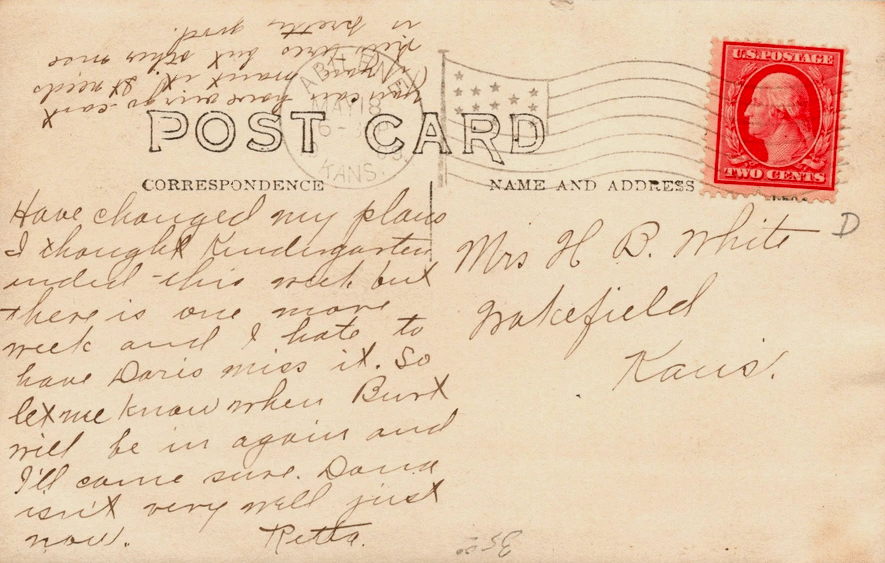 you can have my go-cart
if you want it. It needs
new tires but otherwise
is pretty good.
ABILENE
MAY 18
6-
KANS.
U.S. POSTAGE
TWO CENTS
POST CARD
CORRESPONDENCE
NAME AND ADDRESS
Have changed my plans
I thought Kindergarten
ended this week but
there is one more
week and I hate to
have Doris miss it. So
let me know when Burt
will be in again and
I'll come sure. Dana
isn't very well just
now. Retta.
Mrs H B. White
Wakefield
Kans.
D